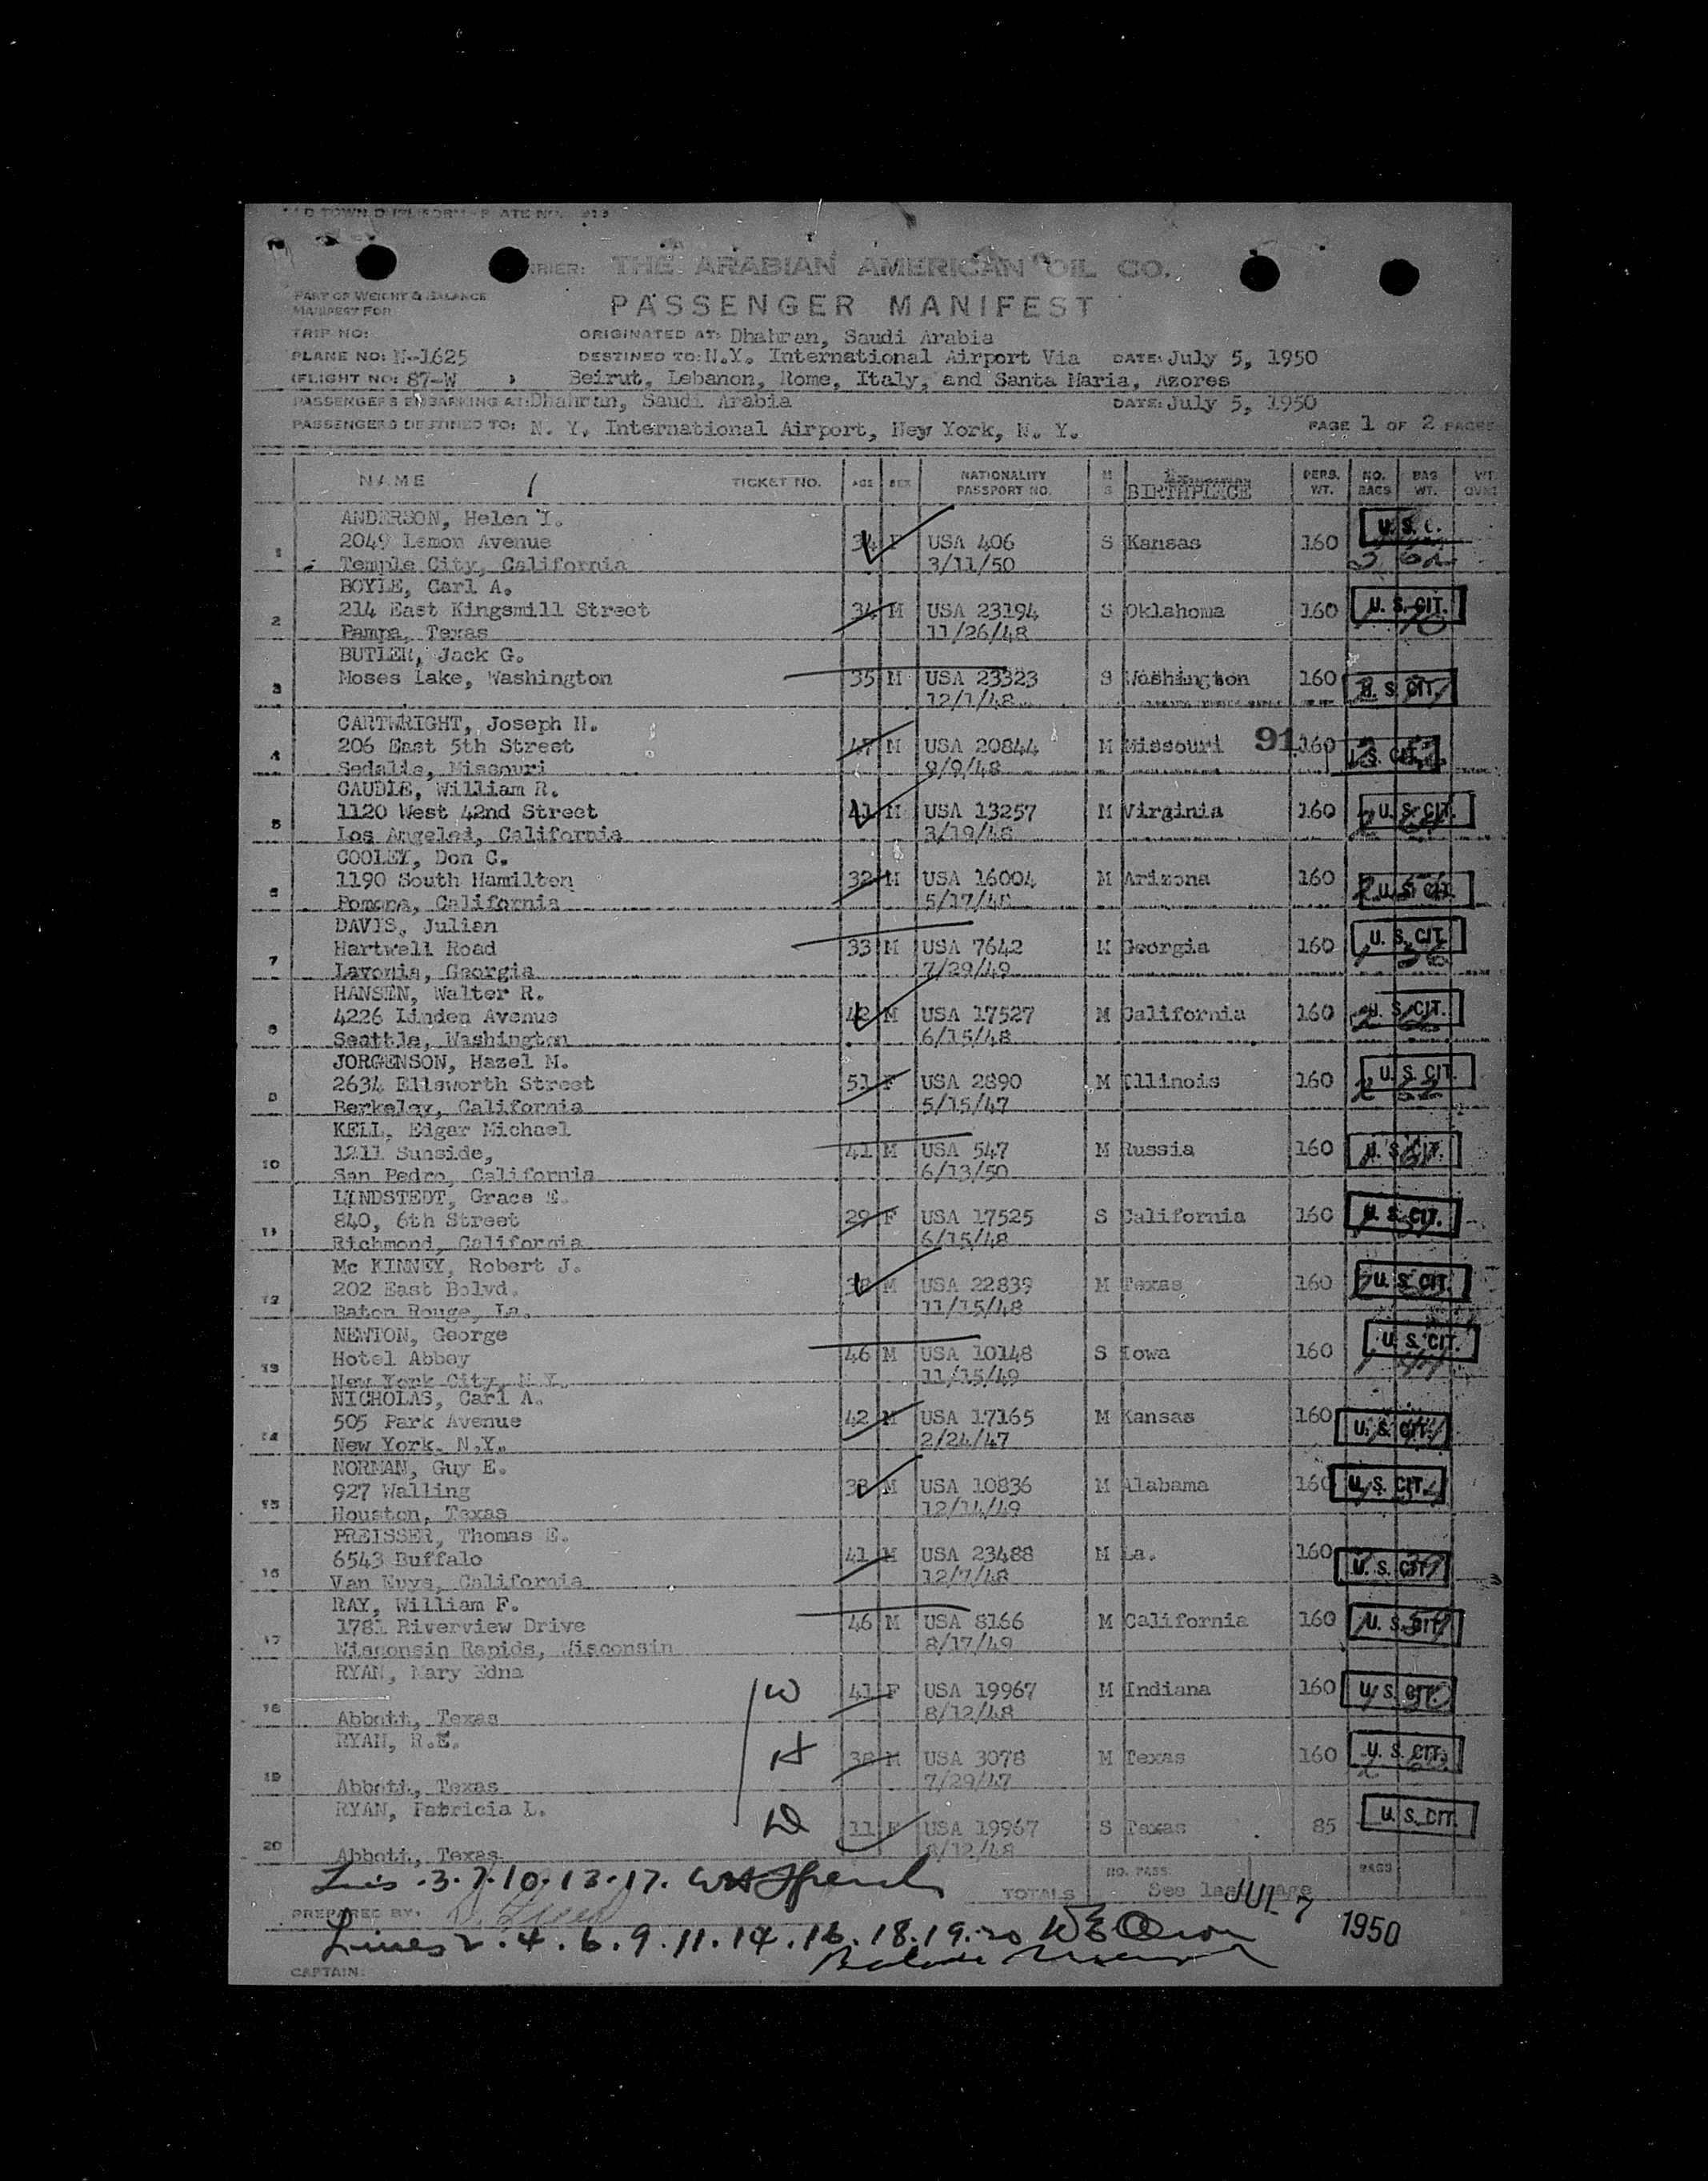 THE ARABIAN AMERICAN OIL CO.
PART OF WEIGHT & BALANCE
MANIFEST FOR
PASSENGER MANIFEST
TRIP NO: ORIGINATED AT: Dhahran, Saudi Arabia
PLANE NO: N-1625 DESTINED TO: N.Y. International Airport Via DATE: July 5, 1950
(FLIGHT NO: 87-W ) Beirut, Lebanon, Rome, Italy, and Santa Maria, Azores
PASSENGERS EMBARKING AT: Dhahran, Saudi Arabia DATE: July 5, 1950
PASSENGERS DESTINED TO: N. Y. International Airport, New York, N. Y. PAGE 1 OF 2 PAGES
NAME TICKET NO. AGE SEX NATIONALITY PASSPORT NO. M S BIRTHPLACE PERS. WT. NO. BAGS BAG WT.
ANDERSON, Helen I.
1 2049 Lemon Avenue 34 F USA 406 S Kansas 160 U. S. C.
Temple City, California 3/11/50
BOYLE, Carl A.
2 214 East Kingsmill Street 34 M USA 23194 S Oklahoma 160 U. S. CIT.
Pampa, Texas 11/26/48
BUTLER, Jack G.
3 Moses Lake, Washington 35 M USA 23323 S Washington 160 U. S. CIT.
12/1/48
CARTWRIGHT, Joseph H.
4 206 East 5th Street 47 M USA 20844 M Missouri 91 160 U. S. CIT.
Sedalia, Missouri 9/9/48
CAUDLE, William R.
5 1120 West 42nd Street 41 M USA 13257 M Virginia 160 U. S. CIT.
Los Angeles, California 3/19/48
COOLEY, Don C.
6 1190 South Hamilton 32 M USA 16004 M Arizona 160 U. S. CIT.
Pomona, California 5/17/48
DAVIS, Julian
7 Hartwell Road 33 M USA 7642 M Georgia 160 U. S. CIT.
Lavonia, Georgia 7/29/49
HANSEN, Walter R.
8 4226 Linden Avenue 42 M USA 17527 M California 160 U. S. CIT.
Seattle, Washington 6/15/48
JORGENSON, Hazel M.
9 2634 Ellsworth Street 51 F USA 2890 M Illinois 160 U. S. CIT.
Berkeley, California 5/15/47
KELL, Edgar Michael
10 1211 Sunside, 41 M USA 547 M Russia 160 U. S. CIT.
San Pedro, California 6/13/50
LINDSTEDT, Grace E.
11 840, 6th Street 29 F USA 17525 S California 160 U. S. CIT.
Richmond, California 6/15/48
Mc KINNEY, Robert J.
12 202 East Bolvd. 38 M USA 22839 M Texas 160 U. S. CIT.
Baton Rouge, La. 11/15/48
NEWTON, George
13 Hotel Abbey 46 M USA 10148 S Iowa 160 U. S. CIT.
New York City, N.Y. 11/15/49
NICHOLAS, Carl A.
14 505 Park Avenue 42 M USA 17165 M Kansas 160 U. S. CIT.
New York, N.Y. 2/24/47
NORMAN, Guy E.
15 927 Walling 38 M USA 10836 M Alabama 160 U. S. CIT.
Houston, Texas 12/14/49
PREISSER, Thomas E.
16 6543 Buffalo 41 M USA 23488 M La. 160 U. S. CIT.
Van Nuys, California 12/7/48
RAY, William F.
17 1781 Riverview Drive 46 M USA 8166 M California 160 U. S. CIT.
Wisconsin Rapids, Wisconsin 8/17/49
RYAN, Mary Edna
18 W 41 F USA 19967 M Indiana 160 U. S. CIT.
Abbott, Texas 8/12/48
RYAN, R.E.
19 H 38 M USA 3078 M Texas 160 U. S. CIT.
Abbott, Texas 7/29/47
RYAN, Patricia L.
20 D 11 F USA 19967 S Texas 85 U. S. CIT.
Abbott, Texas 8/12/48
3.7.10.13.17. NO. PASS. BAGS
TOTALS See last page JUL 7 1950
PREPARED BY:
Lines 2.4.6.9.11.14.16.18.19.20
CAPTAIN: